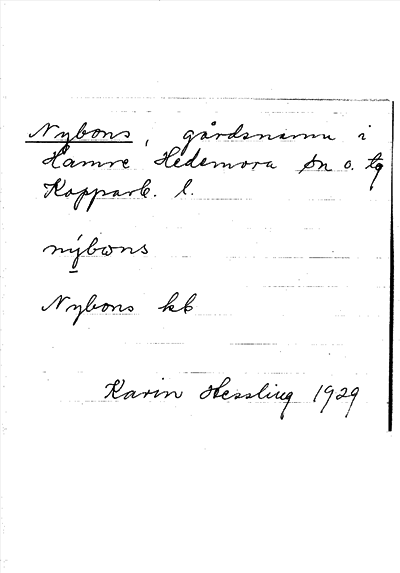 Nybons, gårdsnamn i
Hamre Hedemora sn o. tg
Kopparb. l.
nýbωns
Nybons kb
Karin Hessling 1929